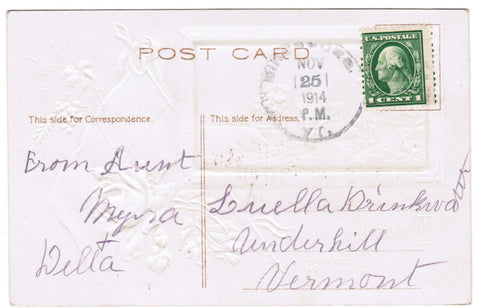 POST CARD
NOV
25
1914
P.M.
VT.
U.S. POSTAGE
1 CENT 1
This side for Correspondence.
This side for Address.
From Aunt
Myra
Delta
Luella Drinkwater
Underhill
Vermont